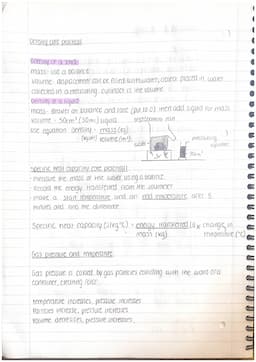 Density core practical
Density of a solid
mass: use a balance
volume: displacement can be filled with water, object placed in water
collected in a measuring cylinder is the volume.
Density of a liquid
mass: beaker on balance and tare (put to 0) then add liquid for mass
volume - 50cm³ (50ml) liquid
use equation density = mass (kg)
(kg/m³) volume (m³)
measuring
cylinder
water
Specific heat capacity core practical
- measure the mass of the water using a balance.
- Record the energy transferred from the joulemeter
- Make a start temperature and an end temperature after 5
minutes and find the difference
Specific heat capacity (J/kg°C) = energy transferred (J) x change in
mass (kg) temperature (°C)
Gas pressure and temperature
Gas pressure is caused by gas particles colliding with the wall of a
container, creating force.
temperature increases, pressure increases
Particles increase, pressure increases
volume decreases, pressure increases.